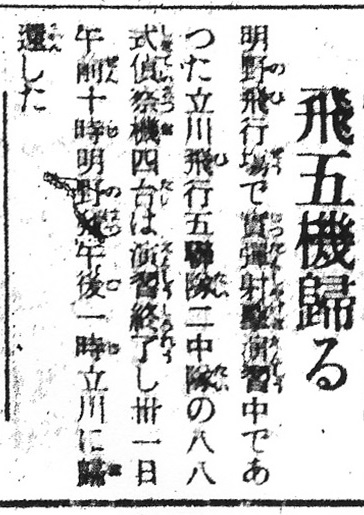 飛五機歸る
明野飛行場で實彈射擊演習中であ
つた立川飛行五聯隊二中隊の八八
式偵察機四台は演習終了し卅一日
午前十時明野發午後一時立川に歸
還した